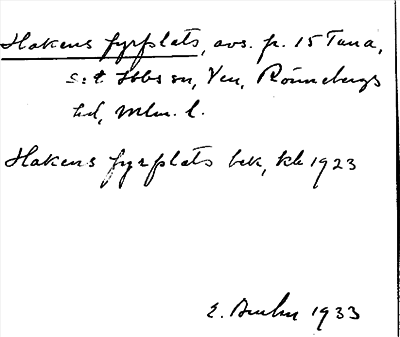 Hakens fyrplats, avs. fr. 15 Tuna,
S:t Ibbs sn, Ven, Rönnebergs
hd, Mlm. l.
Hakens fyrplats bek, kb 1923
E. 1933